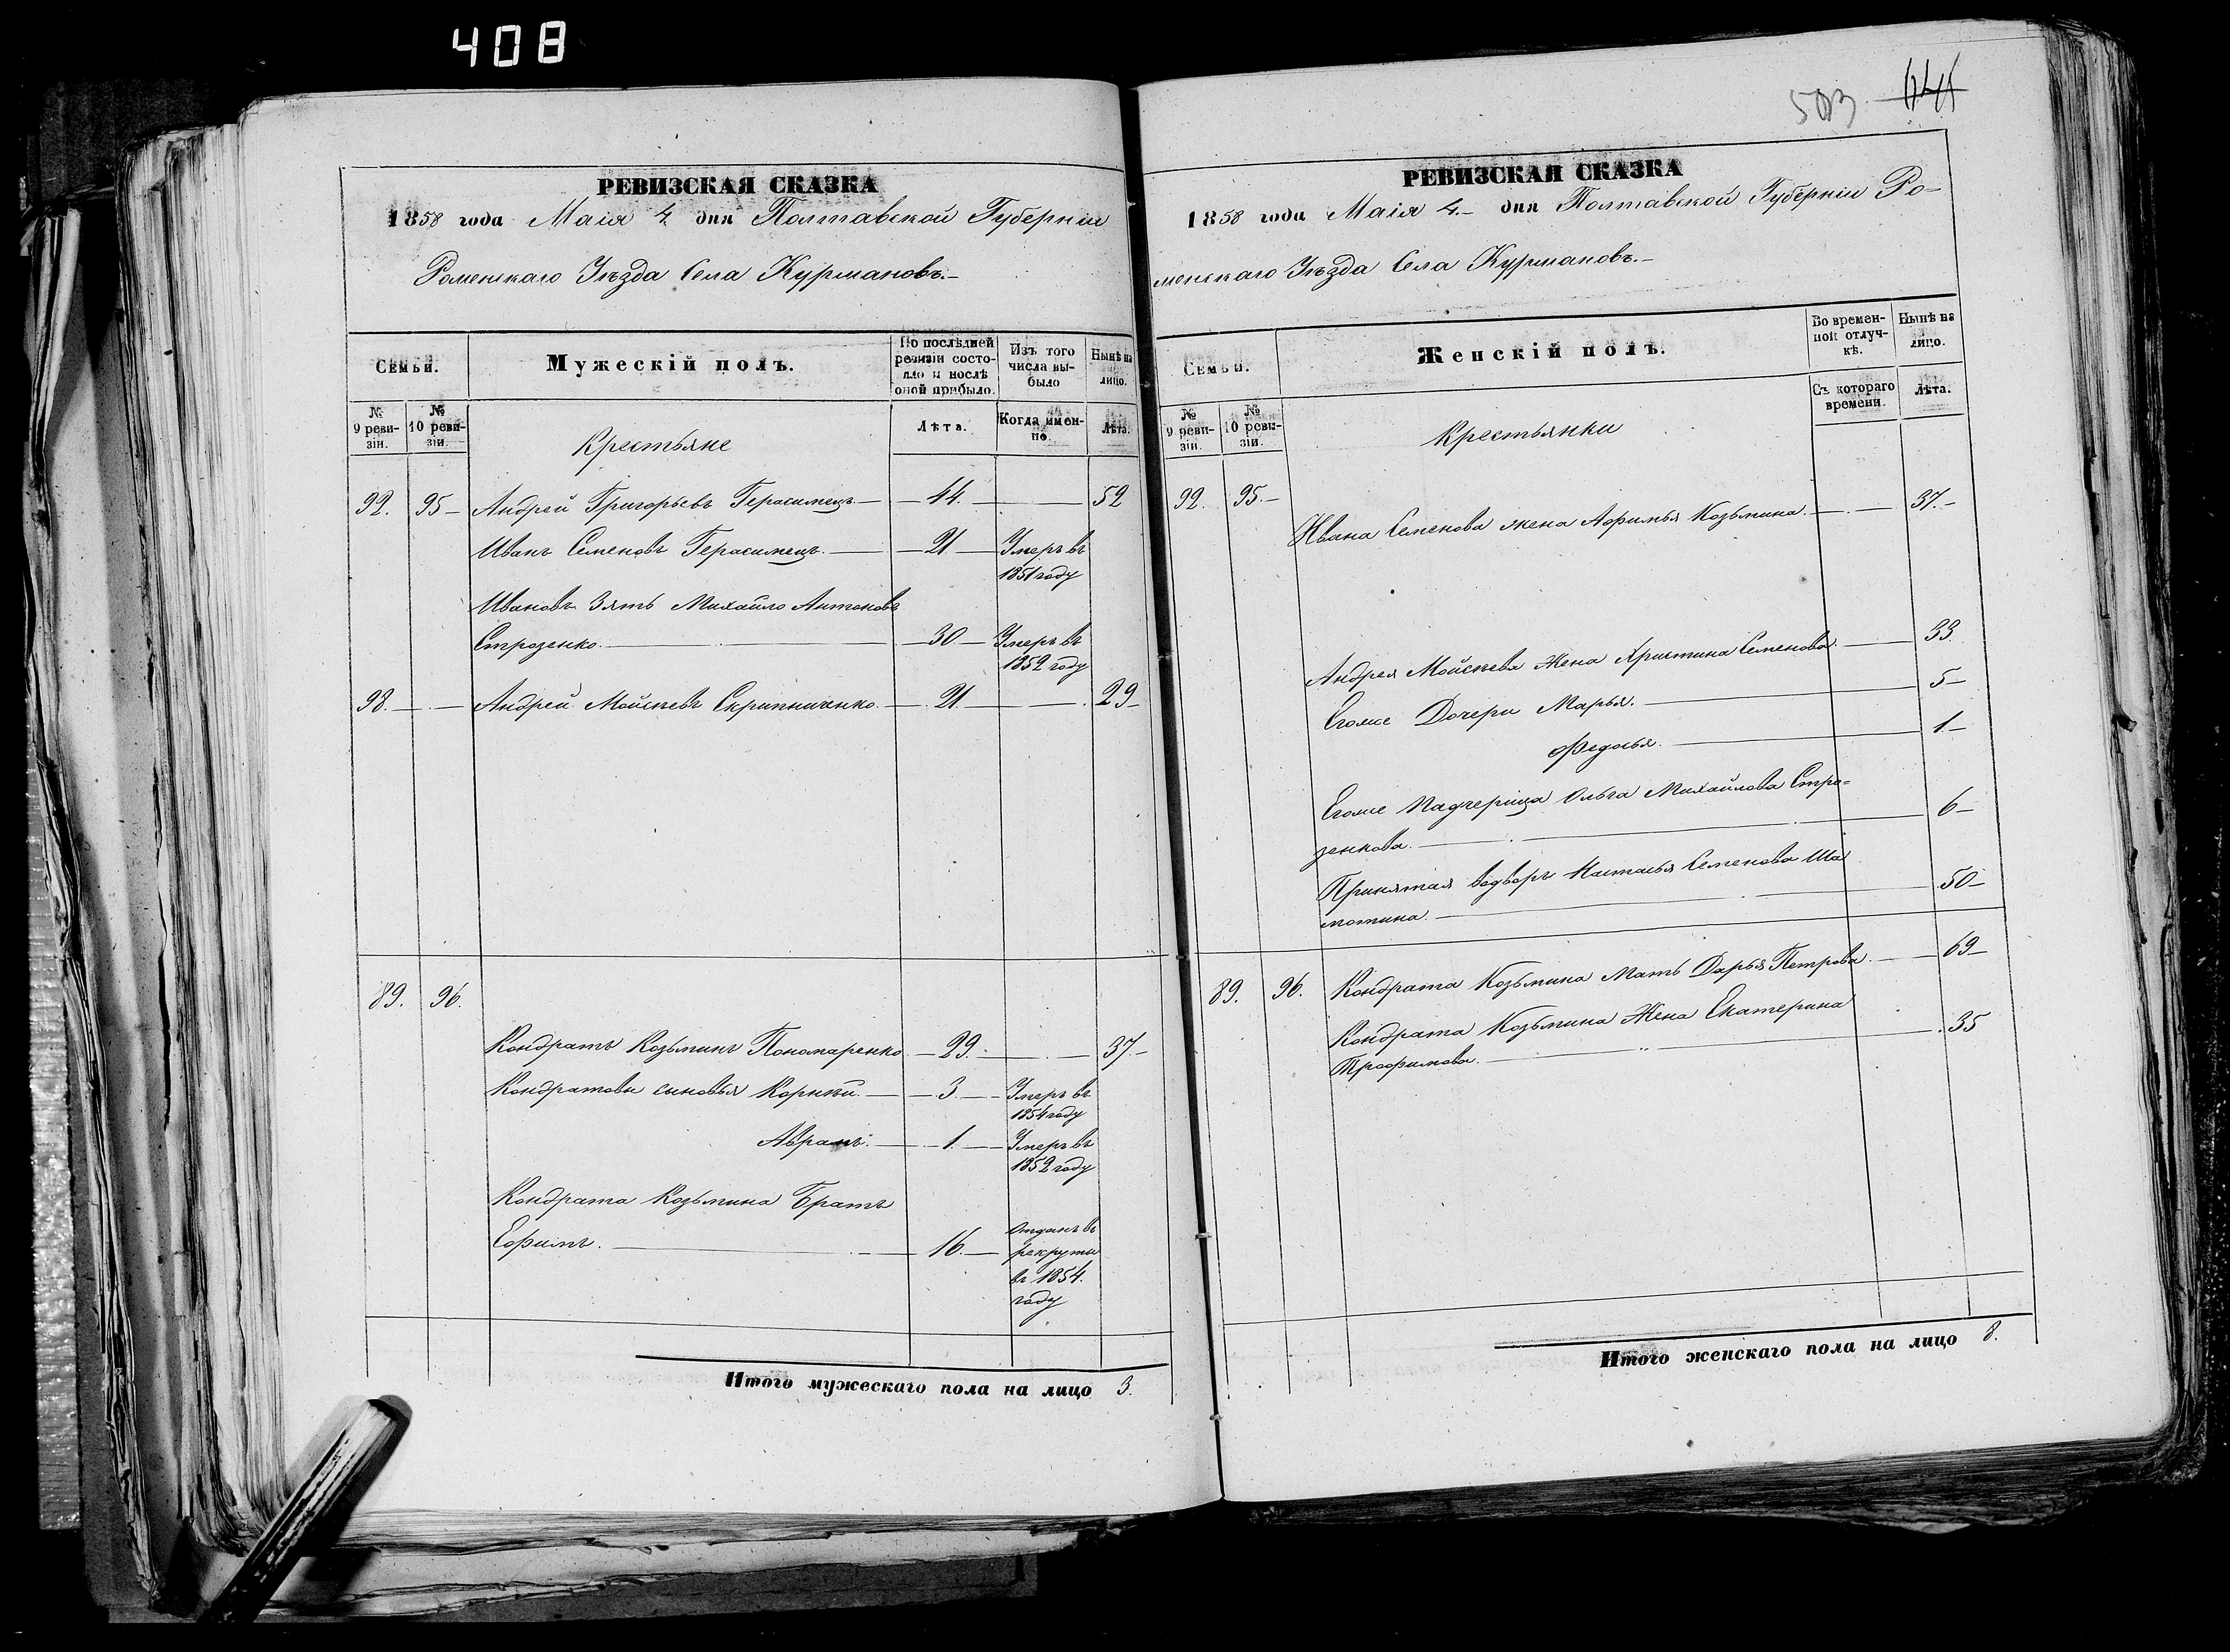 408
503 641
РЕВИЗСКАЯ СКАЗКА
1858 года Маія 4 дня Полтавской Губерніи
Роменскаго Уѣзда Села Курмановъ.
Семьи.
Мужескій полъ.
По послѣдней ревизіи состояло и послѣ оной прибыло.
Изъ того числа выбыло
Нынѣ на лицо.
№ 9 ревизіи.
№ 10 ревизіи.
Лѣта.
Когда именно.
Лѣта.
Крестьяне
92. 95 Андрей Григорьевъ Герасимецъ 44. 52
Иванъ Семеновъ Герасимецъ. 21 Умеръ въ
1851 году
Ивановъ Зять Михайло Антоновъ
Строзенко. 30 Умеръ въ
1852 году
98. Андрей Мойсѣевъ Скрипниченко. 21. 29
89. 96.
Кондратъ Козьминъ Пономаренко 29. 37
Кондратовы сыновья Корнѣй. 3. Умеръ въ
1854 году
Аврамъ. 1. Умеръ въ
1852 году
Кондрата Козьмина Братъ
Ефимъ. 16. Отданъ въ
рекруты
въ 1854.
году
Итого мужескаго пола на лицо 3.
РЕВИЗСКАЯ СКАЗКА
1858 года Маія 4. дня Полтавской Губерніи Ро-
менскаго Уѣзда Села Курмановъ.
Семьи.
Женскій полъ.
Во временной отлучкѣ.
Нынѣ на лицо.
№ 9 ревизіи.
№ 10 ревизіи.
Съ котораго времени.
Лѣта.
Крестьянки
92. 95. Ивана Семенова жена Афимья Козьмина. 37.
Андрея Мойсѣева Жена Христина Семенова. 33.
Егоже Дочери Марья. 5
Федосья. 1
Егоже Падчерица Ольга Михайлова Стро-
зенкова. 6
Принятая водворъ Настасья Семенова Ша
мотина. 50
89. 96. Кондрата Козьмина Мать Дарья Петрова. 69
Кондрата Козьмина Жена Екатерина
Трофимова. 35
Итого женскаго пола на лицо 8.